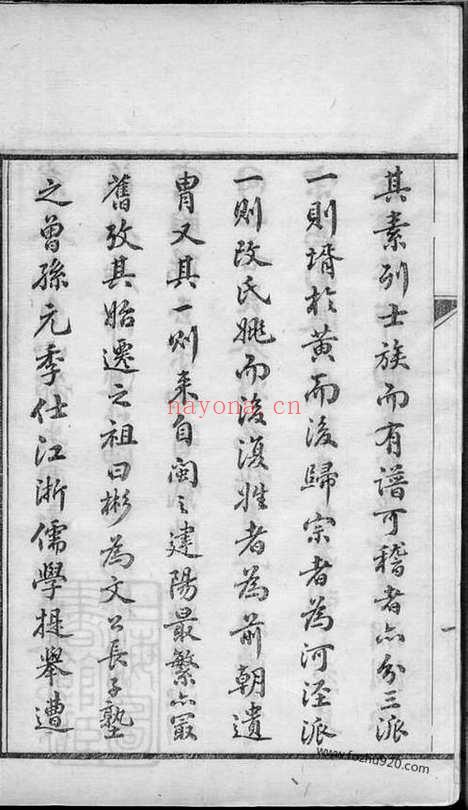 其素列士族而有譜可稽者亦分三派
一則壻於黃而後歸宗者為河涇派
一則改氏姚而後復姓者為前朝遺
冑又其一則來自閩之建陽最繁亦最
舊攷其始遷之祖曰彬為文公長子塾
之曾孫元季仕江浙儒學提舉遭
一
nayona.cn
www.fozhu920.com